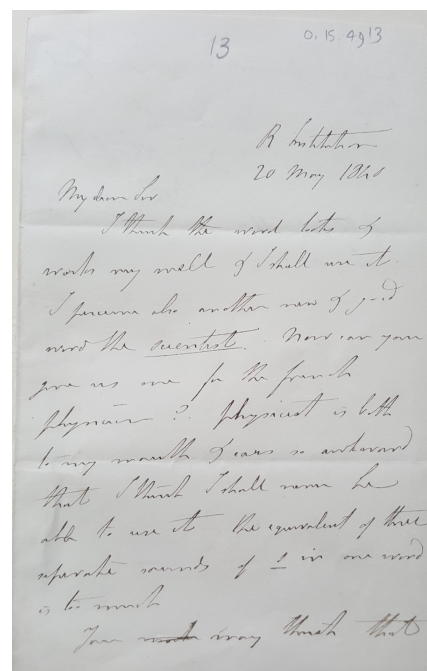 13
O.15.49 13
R Institution
20 May 1840
My dear Sir
I think the word looks &
works very well & I shall use it.
I perceive also another new & good
word the scientist. Now can you
give us one for the french
physicien ? Physicist is both
to my mouth & ears so awkward
that I think I shall never be
able to use it the equivalent of three
separate sounds of s in one word
is too much
You may think that